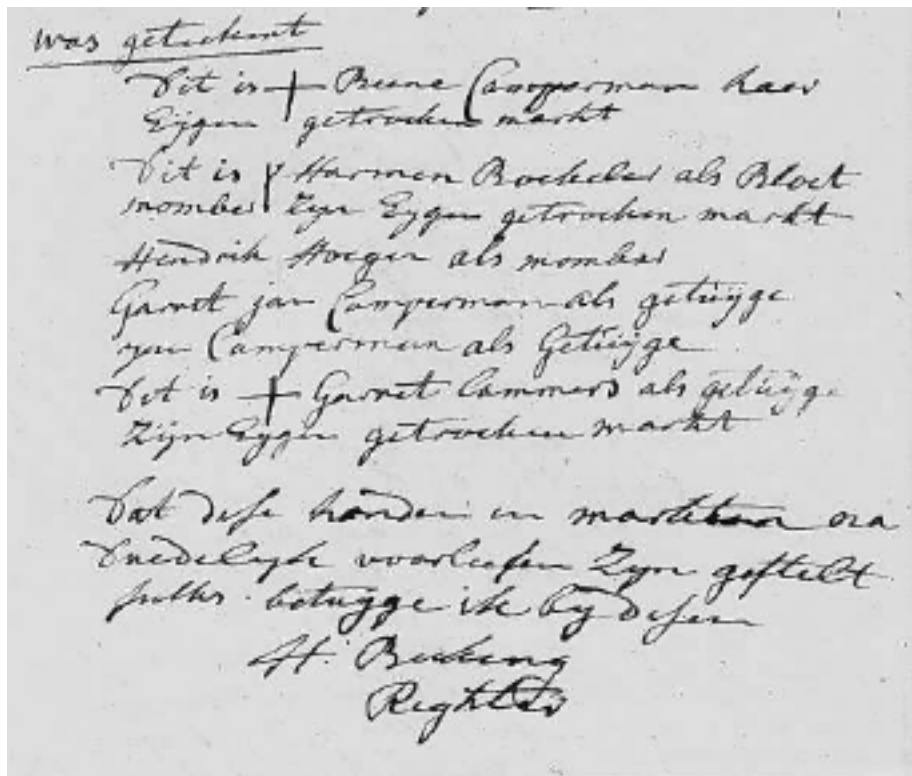 was getekent
Dit is + Beene Camperman haer
Eijgen getrocken markt
Dit is Harmen Bockeler als Bloet
momber Zijn Eygen getrocken markt
Hendrik Hoeger als momber
Garret jan Camperman als getuijge
Camperman als Getuijge
Dit is + Garret Lammers als getuijge
Zijn Eygen getrocken markt
Dat dese handen en markten na
Duedelijk voorleesen Zijn gestelt
sulks betuijge ik bij desen
H. Beeking
Righter